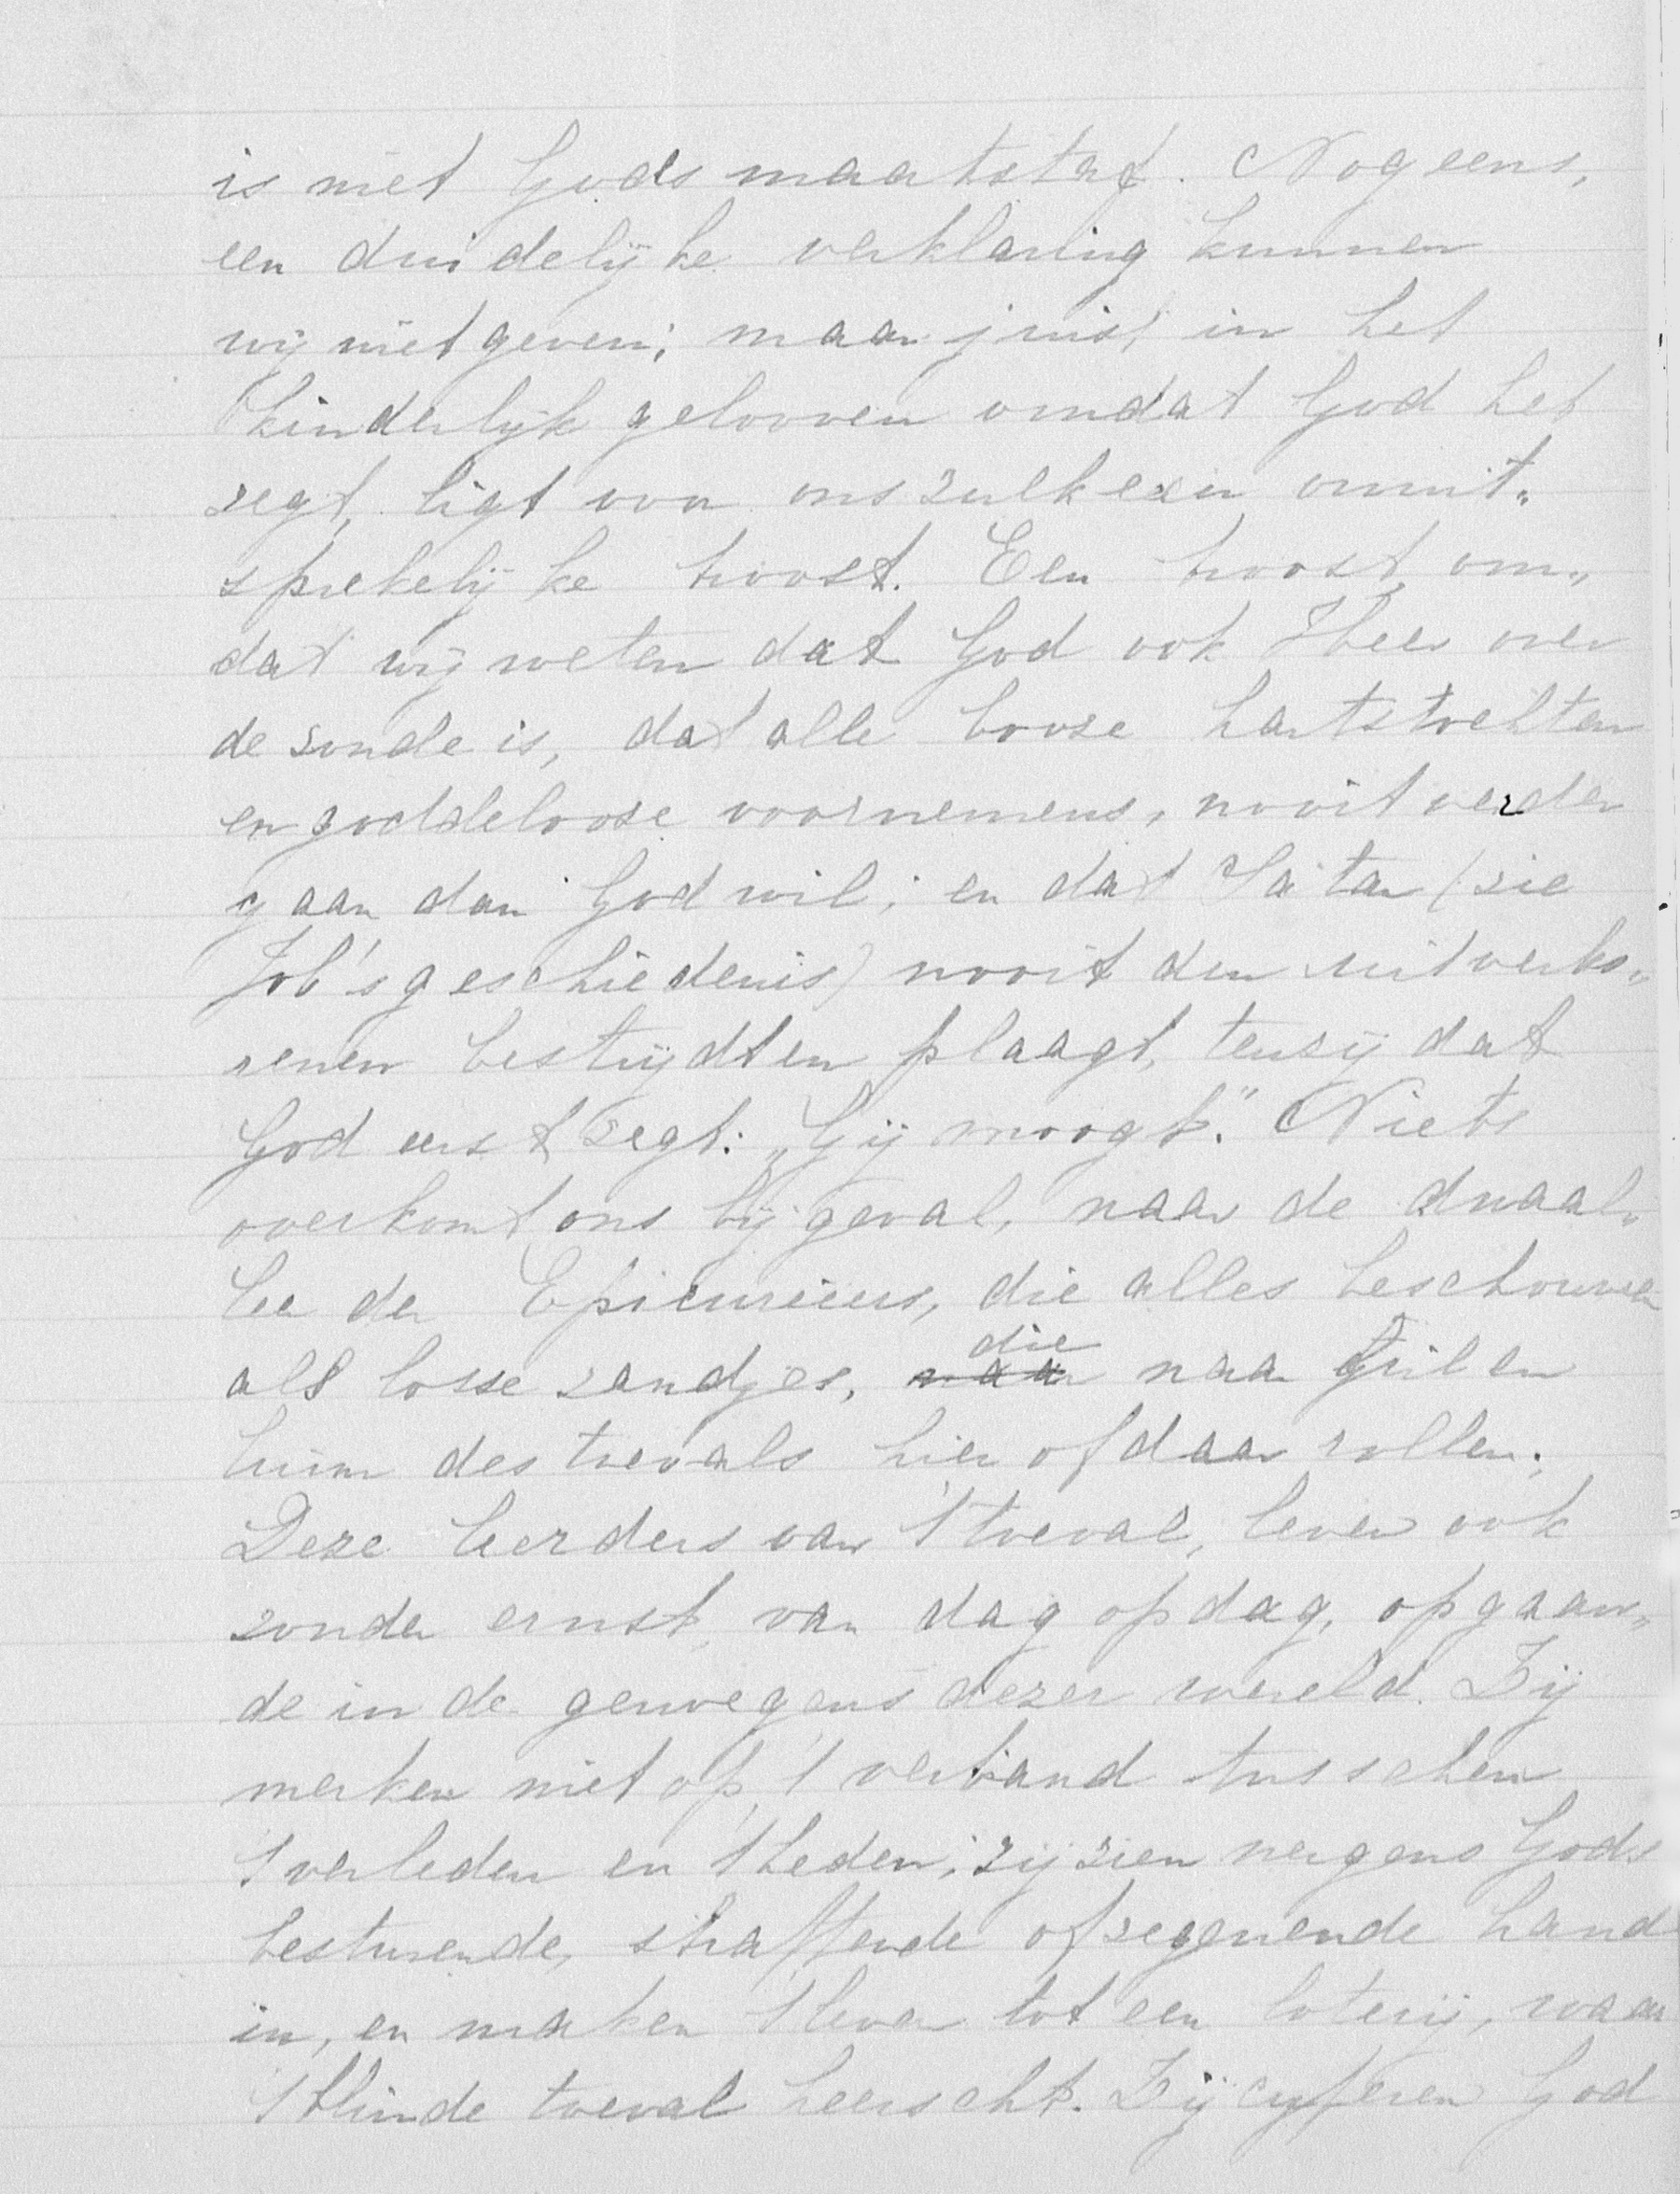 is niet Gods maatstaf. Nog eens,
een duidelijke verklaring kunnen
wij niet geven; maar juist in het
kinderlijk gelooven omdat God het
zegt, ligt voor ons zulk een onuit„
sprekelijke troost. Een troost, om„
dat wij weten dat God ook Heer over
de zonde is, dat alle booze hartstochten
en goddeloose voornemens, nooit verder
gaan dan God wil; en dat Satan (zie
Job's geschiedenis) nooit den uitverko„
renen bestrijdt en plaagt, tenzij dat
God eerst zegt: „Gij moogt." Niets
overkomt ons bij geval, naar de dwaal„
leer der Epicureërs, die alles beschouwen
als losse zandjes, die naar gril en
luim des toevals hier of daar rollen.
Deze leerders van 't toeval, leven ook
zonder ernst, van dag op dag, opgaan„
de in de genoegens dezer wereld. Zij
merken niet op 't verband tusschen
't verleden en 't heden; zij zien nergens Gods
besturende, straffende of zegenende hand
in, en maken 't leven tot een loterij, waar
't blinde toeval heerscht. Zij cyferen God